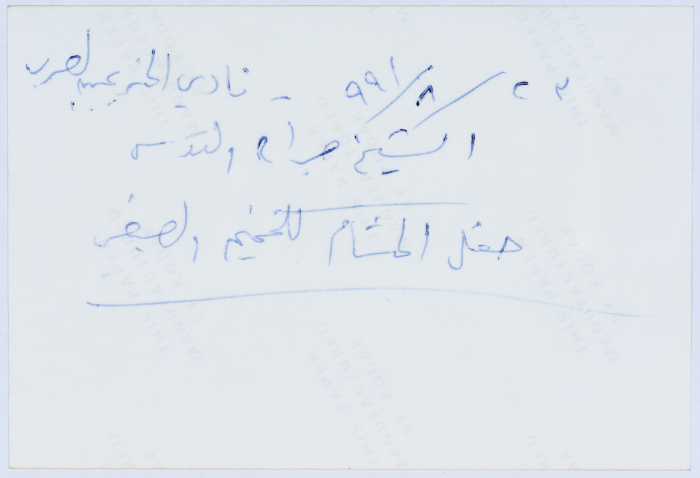 ٢٣/٨/٩٩١ - نادي الخريجين العرب
الشيخ جراح القدس
حفل الختام للمخيم الصيفي
THIS PAPER
MANUFACTURED
BY KODAK